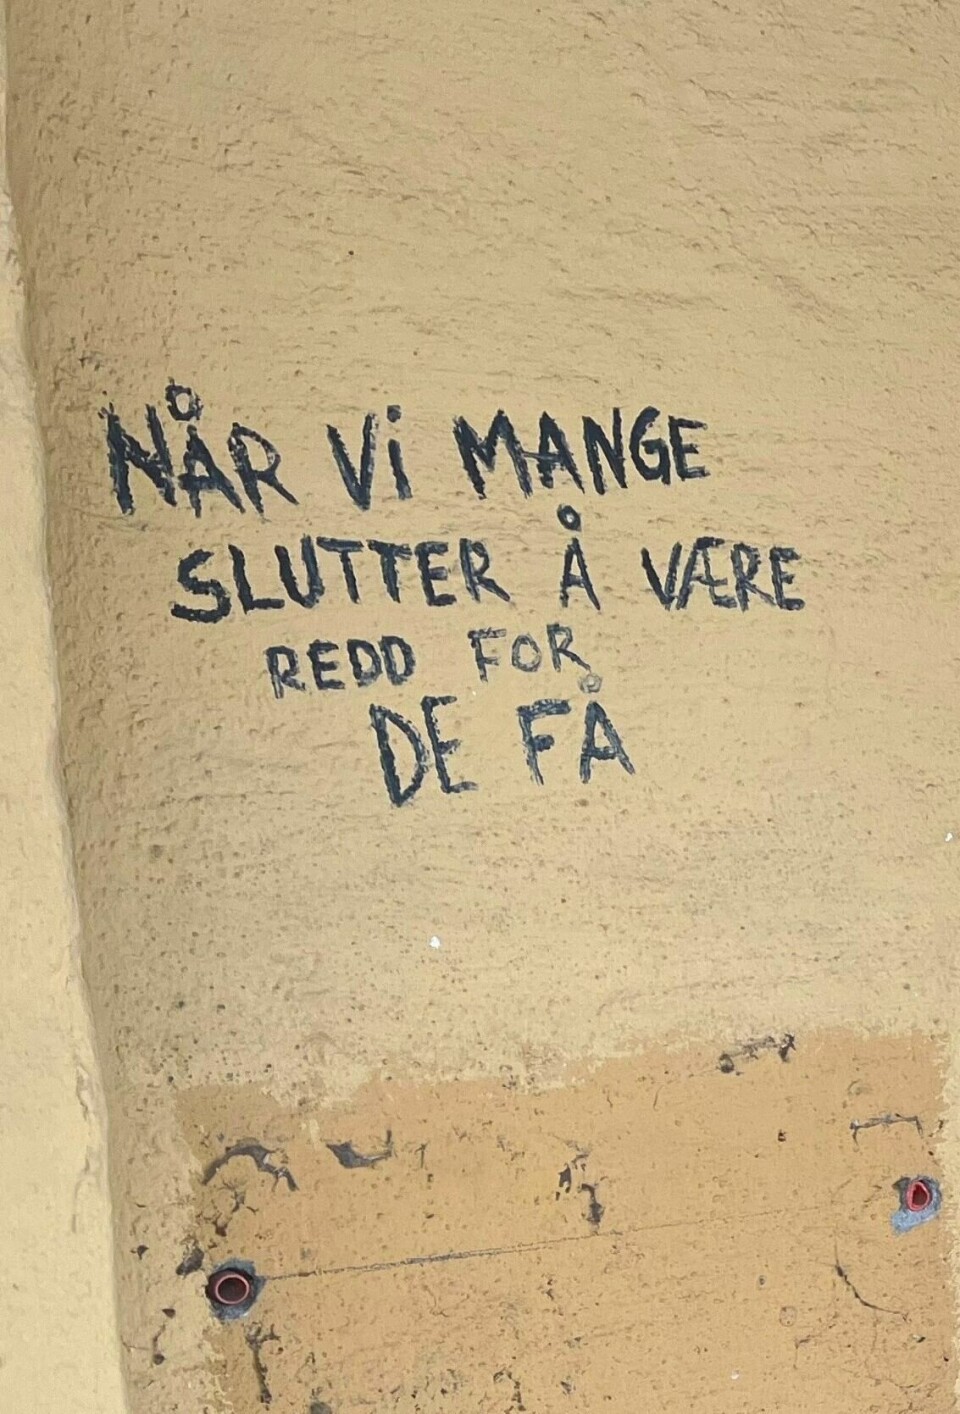 NÅR Vi MANGE
SLUTTER Å VÆRE
REDD FOR
DE FÅ